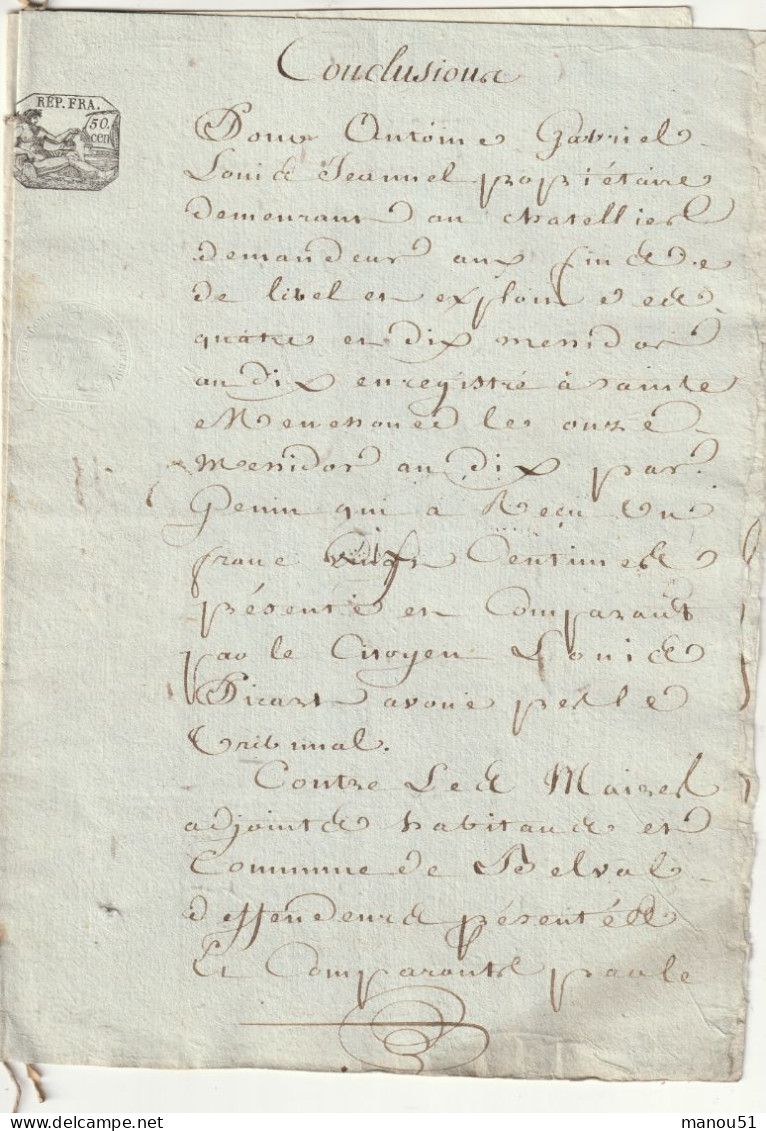 Conclusions
REP. FRA.
50.
cen
Pour Antoine Gabriel
Louis Jeannel propriétaire
demeurant au chatellier
demandeur aux fins de
de libel et exploit des
quatre et dix messidor
an dix enregistré à sainte
Menehoued le onze
Messidor an dix par
Genin qui a Reçu un
franc Centimes
présenté et Comparant
par le Citoyen Louis
Picart avoué pres le
tribunal.
Contre Les Maire
adjoints habitans et
Commune de Belval
deffendeurs présentés
Et Comparants par le
manou51